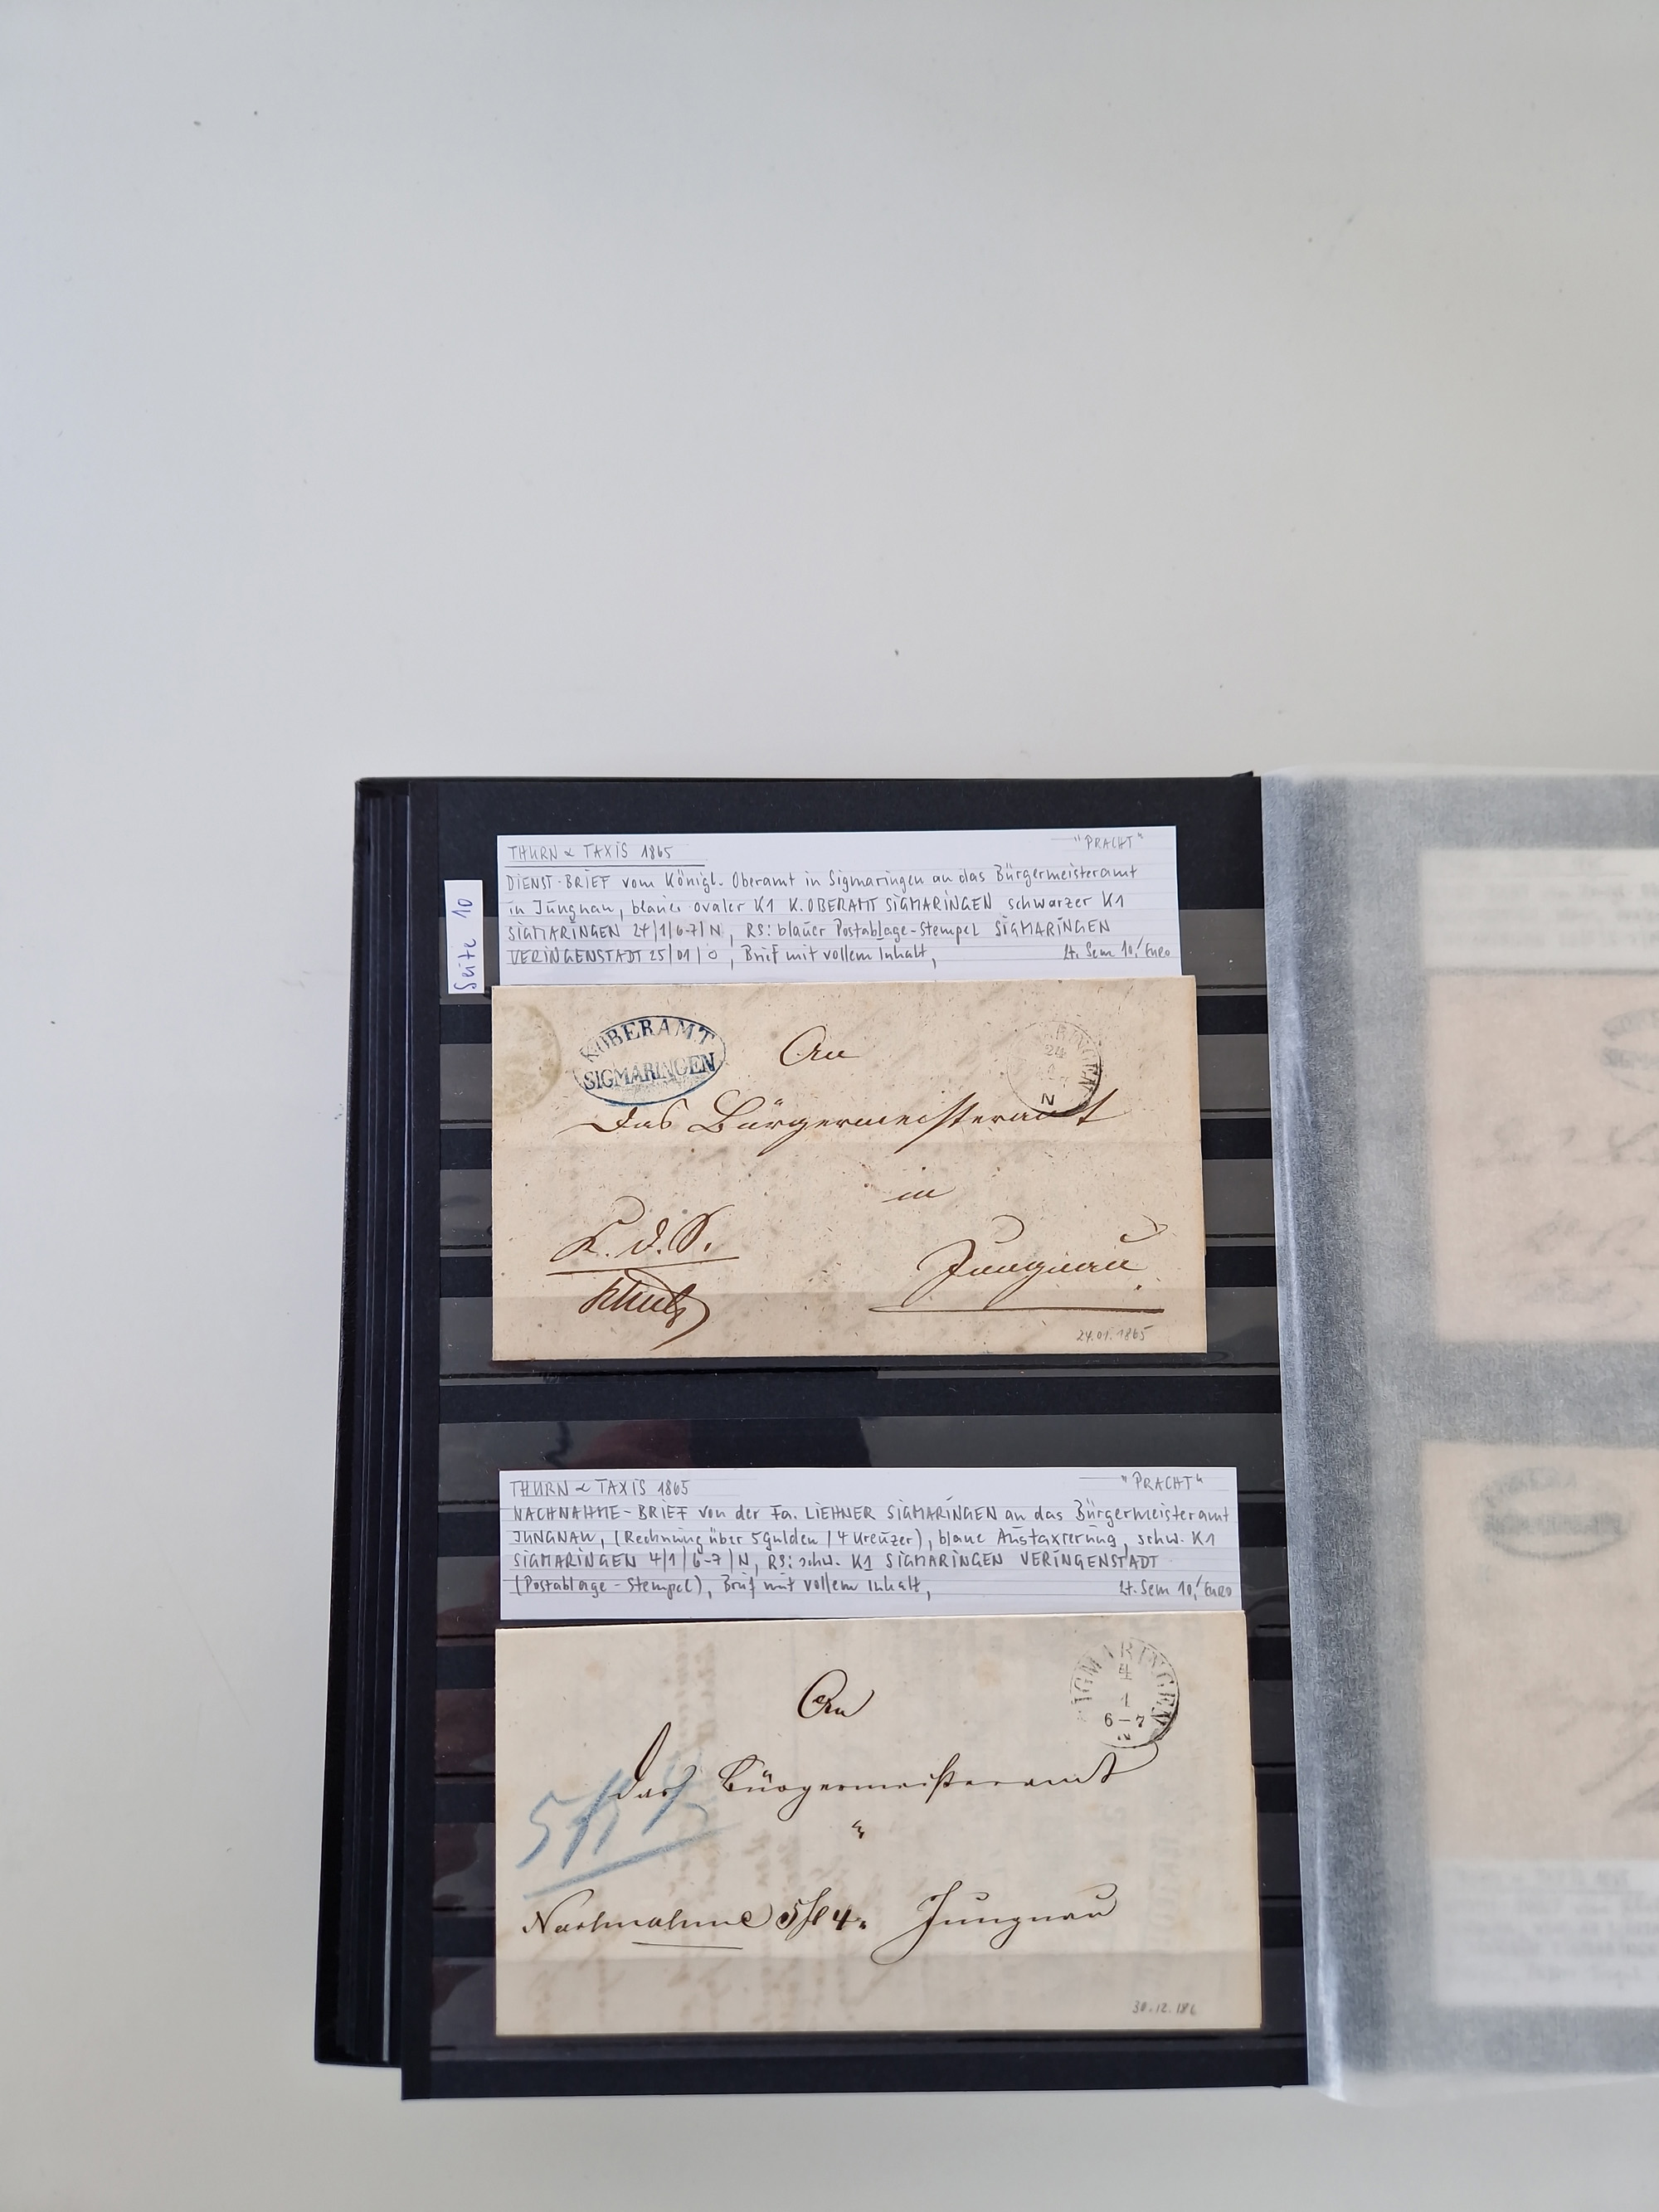 Seite 10
THURN & TAXIS 1865 "PRACHT"
DIENST-BRIEF vom Königl. Oberamt in Sigmaringen an das Bürgermeisteramt
in Jungnau, blauer ovaler K1 K.OBERAMT SIGMARINGEN schwarzer K1
SIGMARINGEN 24/1/6-7/N, RS: blauer Postablage-Stempel SIGMARINGEN
VERINGENSTADT 25/01/0, Brief mit vollem Inhalt, Lt. Sem 10,- Euro
K.OBERAMT
SIGMARINGEN
An
24
N
Das Bürgermeisteramt
in
K. d. S.
Jungnau
24.01.1865
THURN & TAXIS 1865 "PRACHT"
NACHNAHME-BRIEF von der Fa. LIEHNER SIGMARINGEN an das Bürgermeisteramt
JUNGNAU, (Rechnung über 5 Gulden / 4 Kreuzer), blaue Austaxierung, schw. K1
SIGMARINGEN 4/1/6-7/N, RS: schw. K1 SIGMARINGEN VERINGENSTADT
(Postablage-Stempel), Brief mit vollem Inhalt, Lt. Sem 10,- Euro
SIGMARINGEN
4
1
6-7
N
An
das Bürgermeisteramt
Nachnahme 5 fl 4. Jungnau
30.12.186